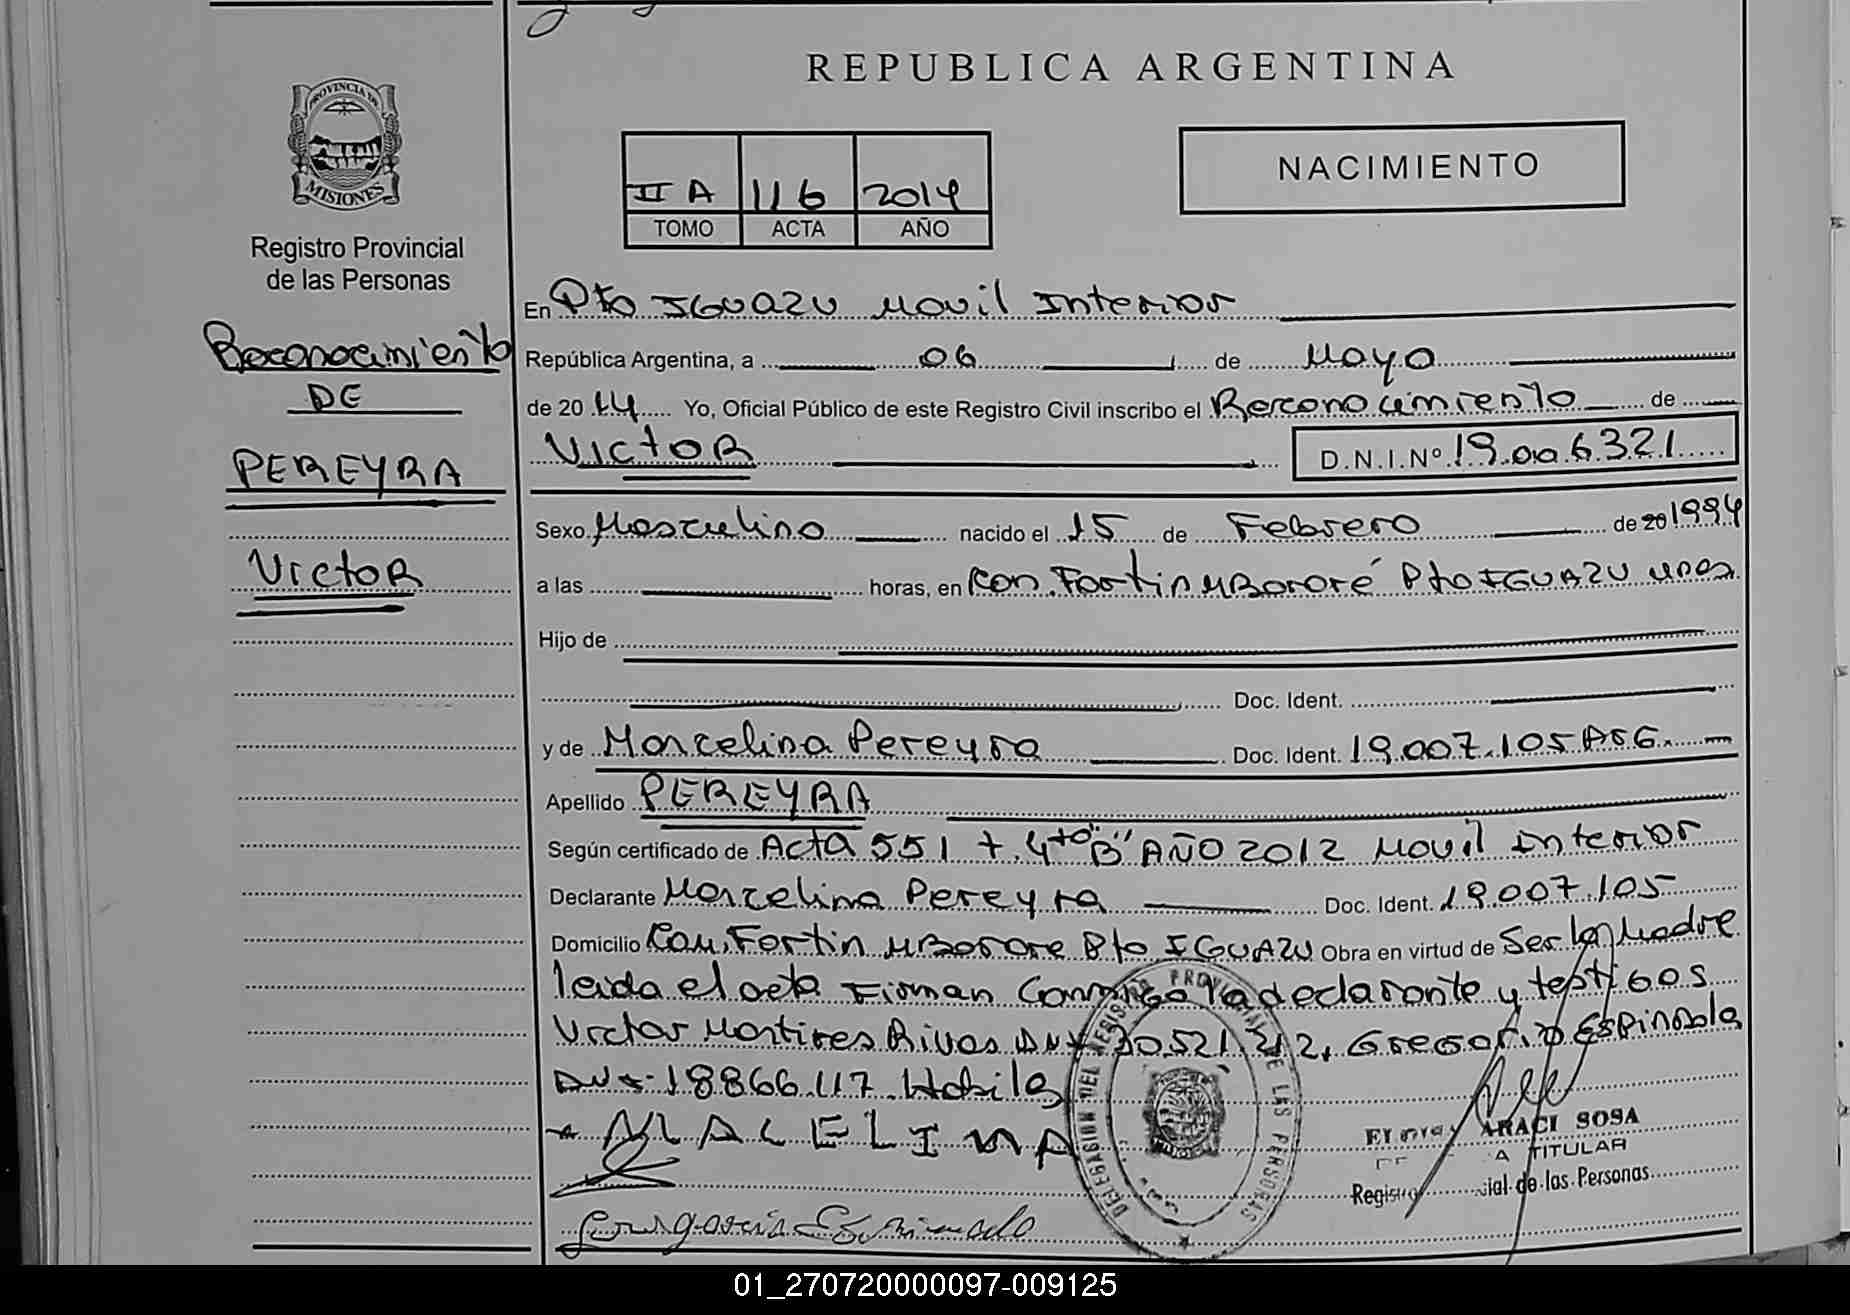 REPUBLICA ARGENTINA
PROVINCIA DE
MISIONES
Registro Provincial
de las Personas
II A 116 2014
TOMO ACTA AÑO
NACIMIENTO
Reconocimiento
DE
PEREYRA
Victor
En Pto IGUAZU Movil Interior
República Argentina, a 06 de Mayo
de 20 14 Yo, Oficial Público de este Registro Civil inscribo el Reconocimiento de
VICTOR D.N.I.Nº 19.006.321
Sexo Masculino nacido el 15 de Febrero de 20 1994
a las horas, en Com. Fortin MBororé Pto IGUAZU Mnes
Hijo de
Doc. Ident.
y de Marcelina Pereyra Doc. Ident. 19.007.105 ARG.
Apellido PEREYRA
Según certificado de Acta 551 t. 4to "B" AÑO 2012 Movil Interior
Declarante Marcelina Pereyra Doc. Ident. 19.007.105
Domicilio Com. Fortin MBorore Pto IGUAZU Obra en virtud de Ser la Madre
leida el acta Firman Conmigo la declarante y testigos
Victor Martires Rivas DNI 30.521.212, Gregorio Espindola
DNI 18866.117 Habiles
MALELINA
DELEGACION DEL REGISTRO PROVINCIAL DE LAS PERSONAS
ARACI SOSA
TITULAR
de las Personas
01_270720000097-009125